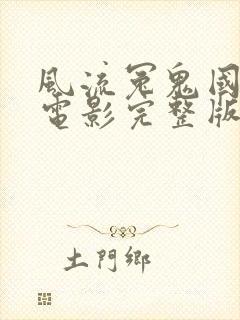 風流冤鬼國
電影完整版
土門鄉